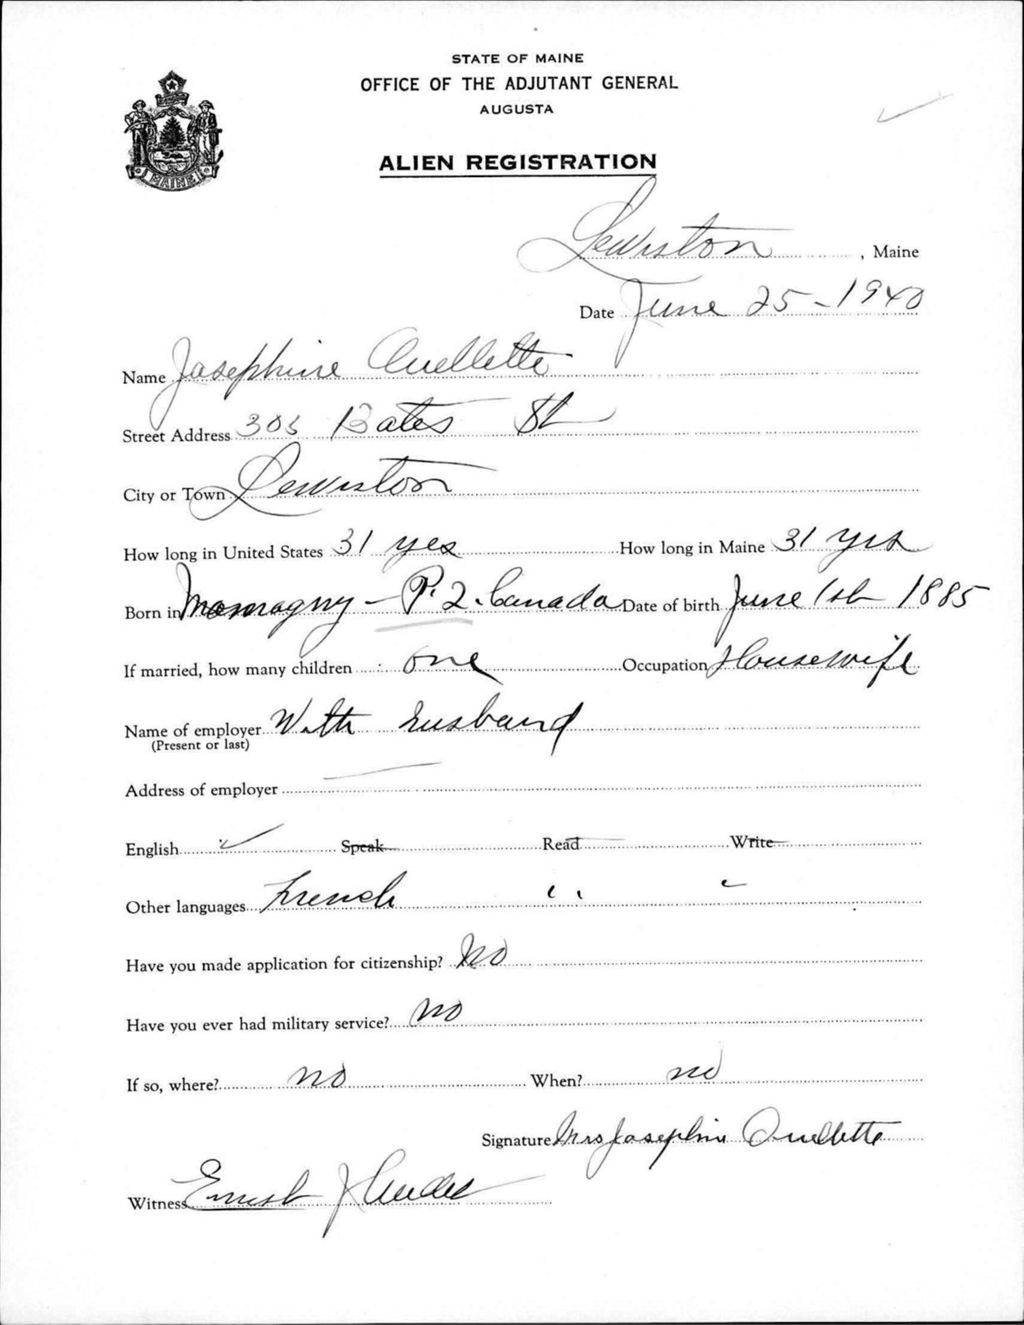 STATE OF MAINE
OFFICE OF THE ADJUTANT GENERAL
AUGUSTA
MAINE
ALIEN REGISTRATION
Lewiston, Maine
Date June 25-1940
Name Josephine Ouellette
Street Address 303 Bates St
City or Town Lewiston
How long in United States 31 yes How long in Maine 31 yrs
Born in Momagny - P.Q. Canada Date of birth June 1st 1885
If married, how many children one Occupation Housewife
Name of employer With husband
(Present or last)
Address of employer —
English ✓ Speak Read Write
Other languages French " "
Have you made application for citizenship? No
Have you ever had military service? no
If so, where? no When? no
Signature Mrs Josephine Ouellette
Witness Ernest J